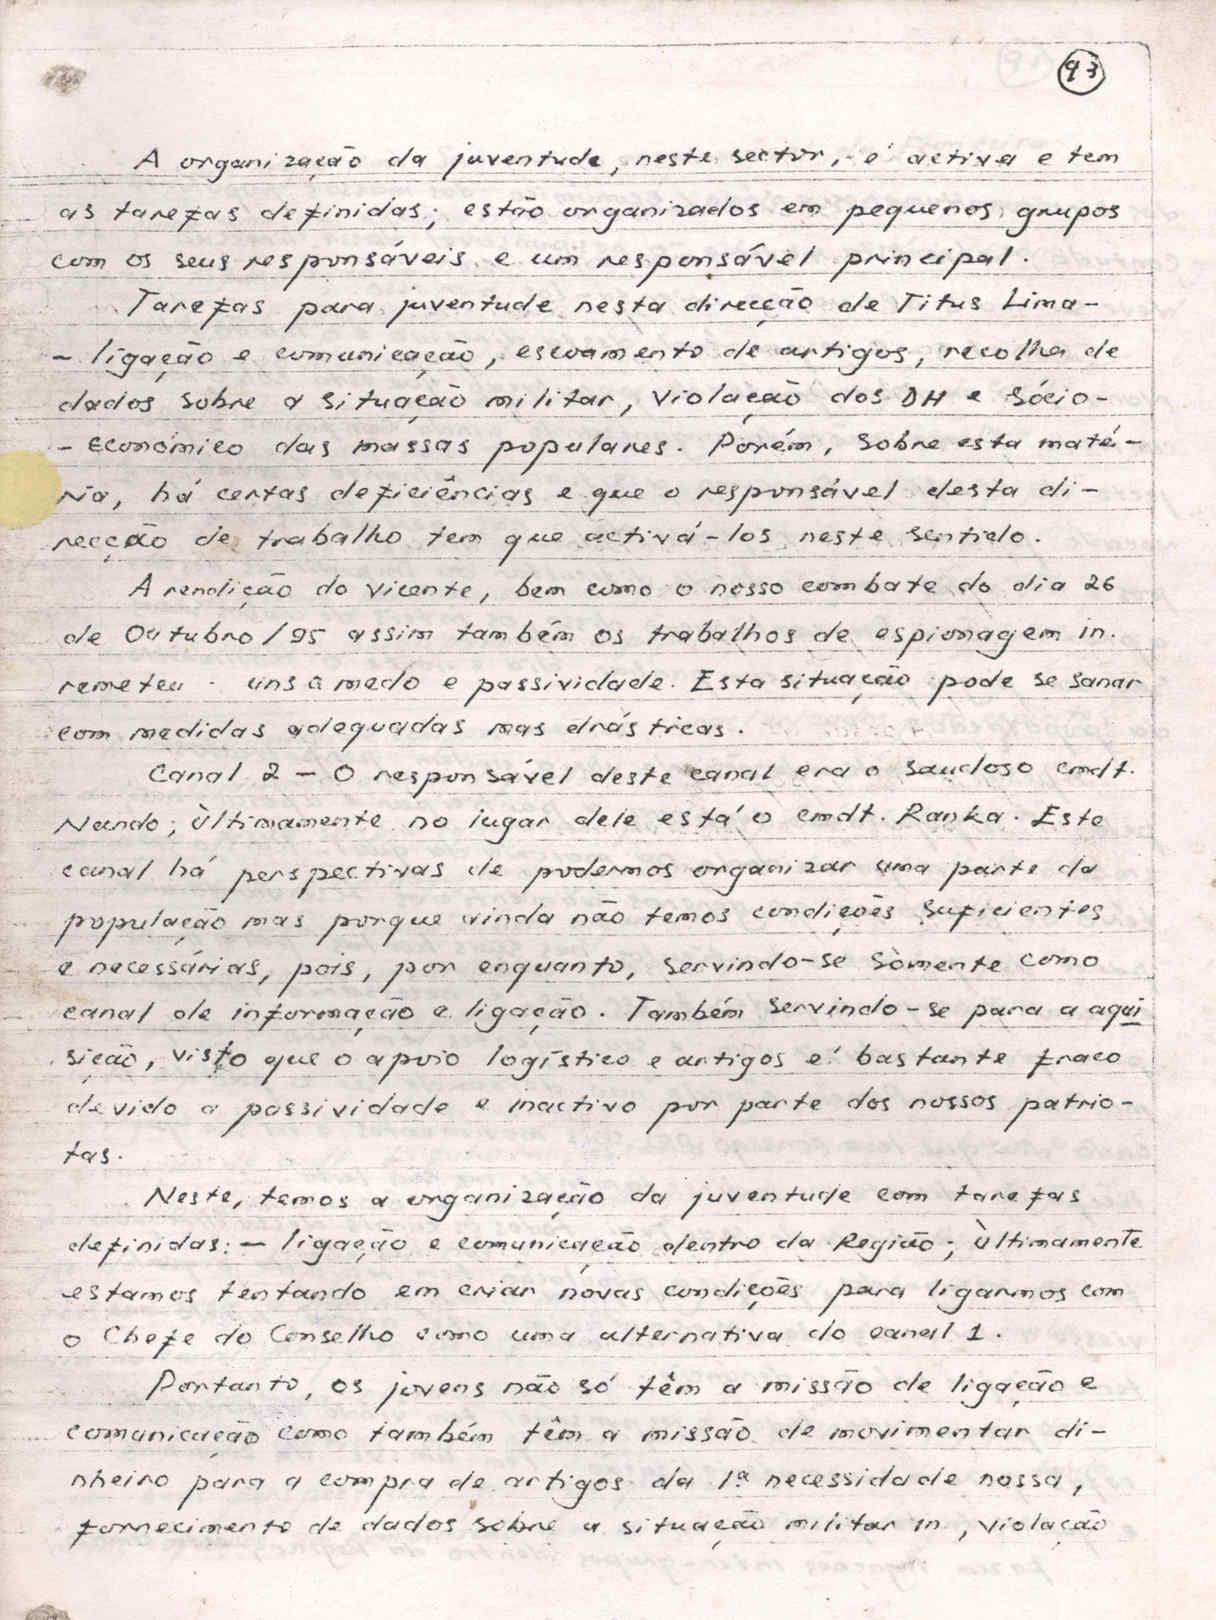 93
A organização da juventude, neste sector, é activa e tem
as tarefas definidas; estão organizados em pequenos grupos
com os seus responsáveis e um responsável principal.
Tarefas para juventude nesta direcção de Titus Lima-
- ligação e comunicação, escoamento de artigos, recolha de
dados sobre a situação militar, violação dos DH e sócio-
- económico das massas populares. Porém, sobre esta maté-
ria, há certas deficiências e que o responsável desta di-
recção de trabalho tem que activá-los neste sentido.
A rendição do Vicente, bem como o nosso combate do dia 26
de Outubro/95 assim também os trabalhos de espionagem in.
remeteu uns a medo e passividade. Esta situação pode se sanar
com medidas adequadas mas drásticas.
Canal 2 - O responsável deste canal era o saudoso cmdt.
Nando; Ùltimamente no lugar dele está o cmdt. Ranka. Este
canal há perspectivas de podermos organizar uma parte da
população mas porque ainda não temos condições suficientes
e necessárias, pois, por enquanto, servindo-se sòmente como
canal de informação e ligação. Também servindo-se para a aqui
sição, visto que o apoio logístico e artigos é bastante fraco
devido a passividade e inactivo por parte dos nossos patrio-
tas.
Neste, temos a organização da juventude com tarefas
definidas: - ligação e comunicação dentro da Região; Ùltimamente
estamos tentando em criar novas condições para ligarmos com
o Chefe do Conselho como uma alternativa do canal 1.
Portanto, os jovens não só têm a missão de ligação e
comunicação como também têm a missão de movimentar di-
nheiro para a compra de artigos da 1ª necessidade nossa,
fornecimento de dados sobre a situação militar in, violação